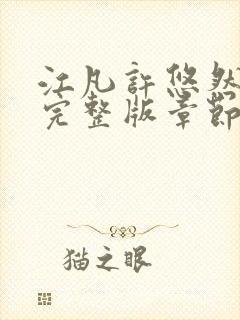 江凡許悠然
完整版章節
猫之眼